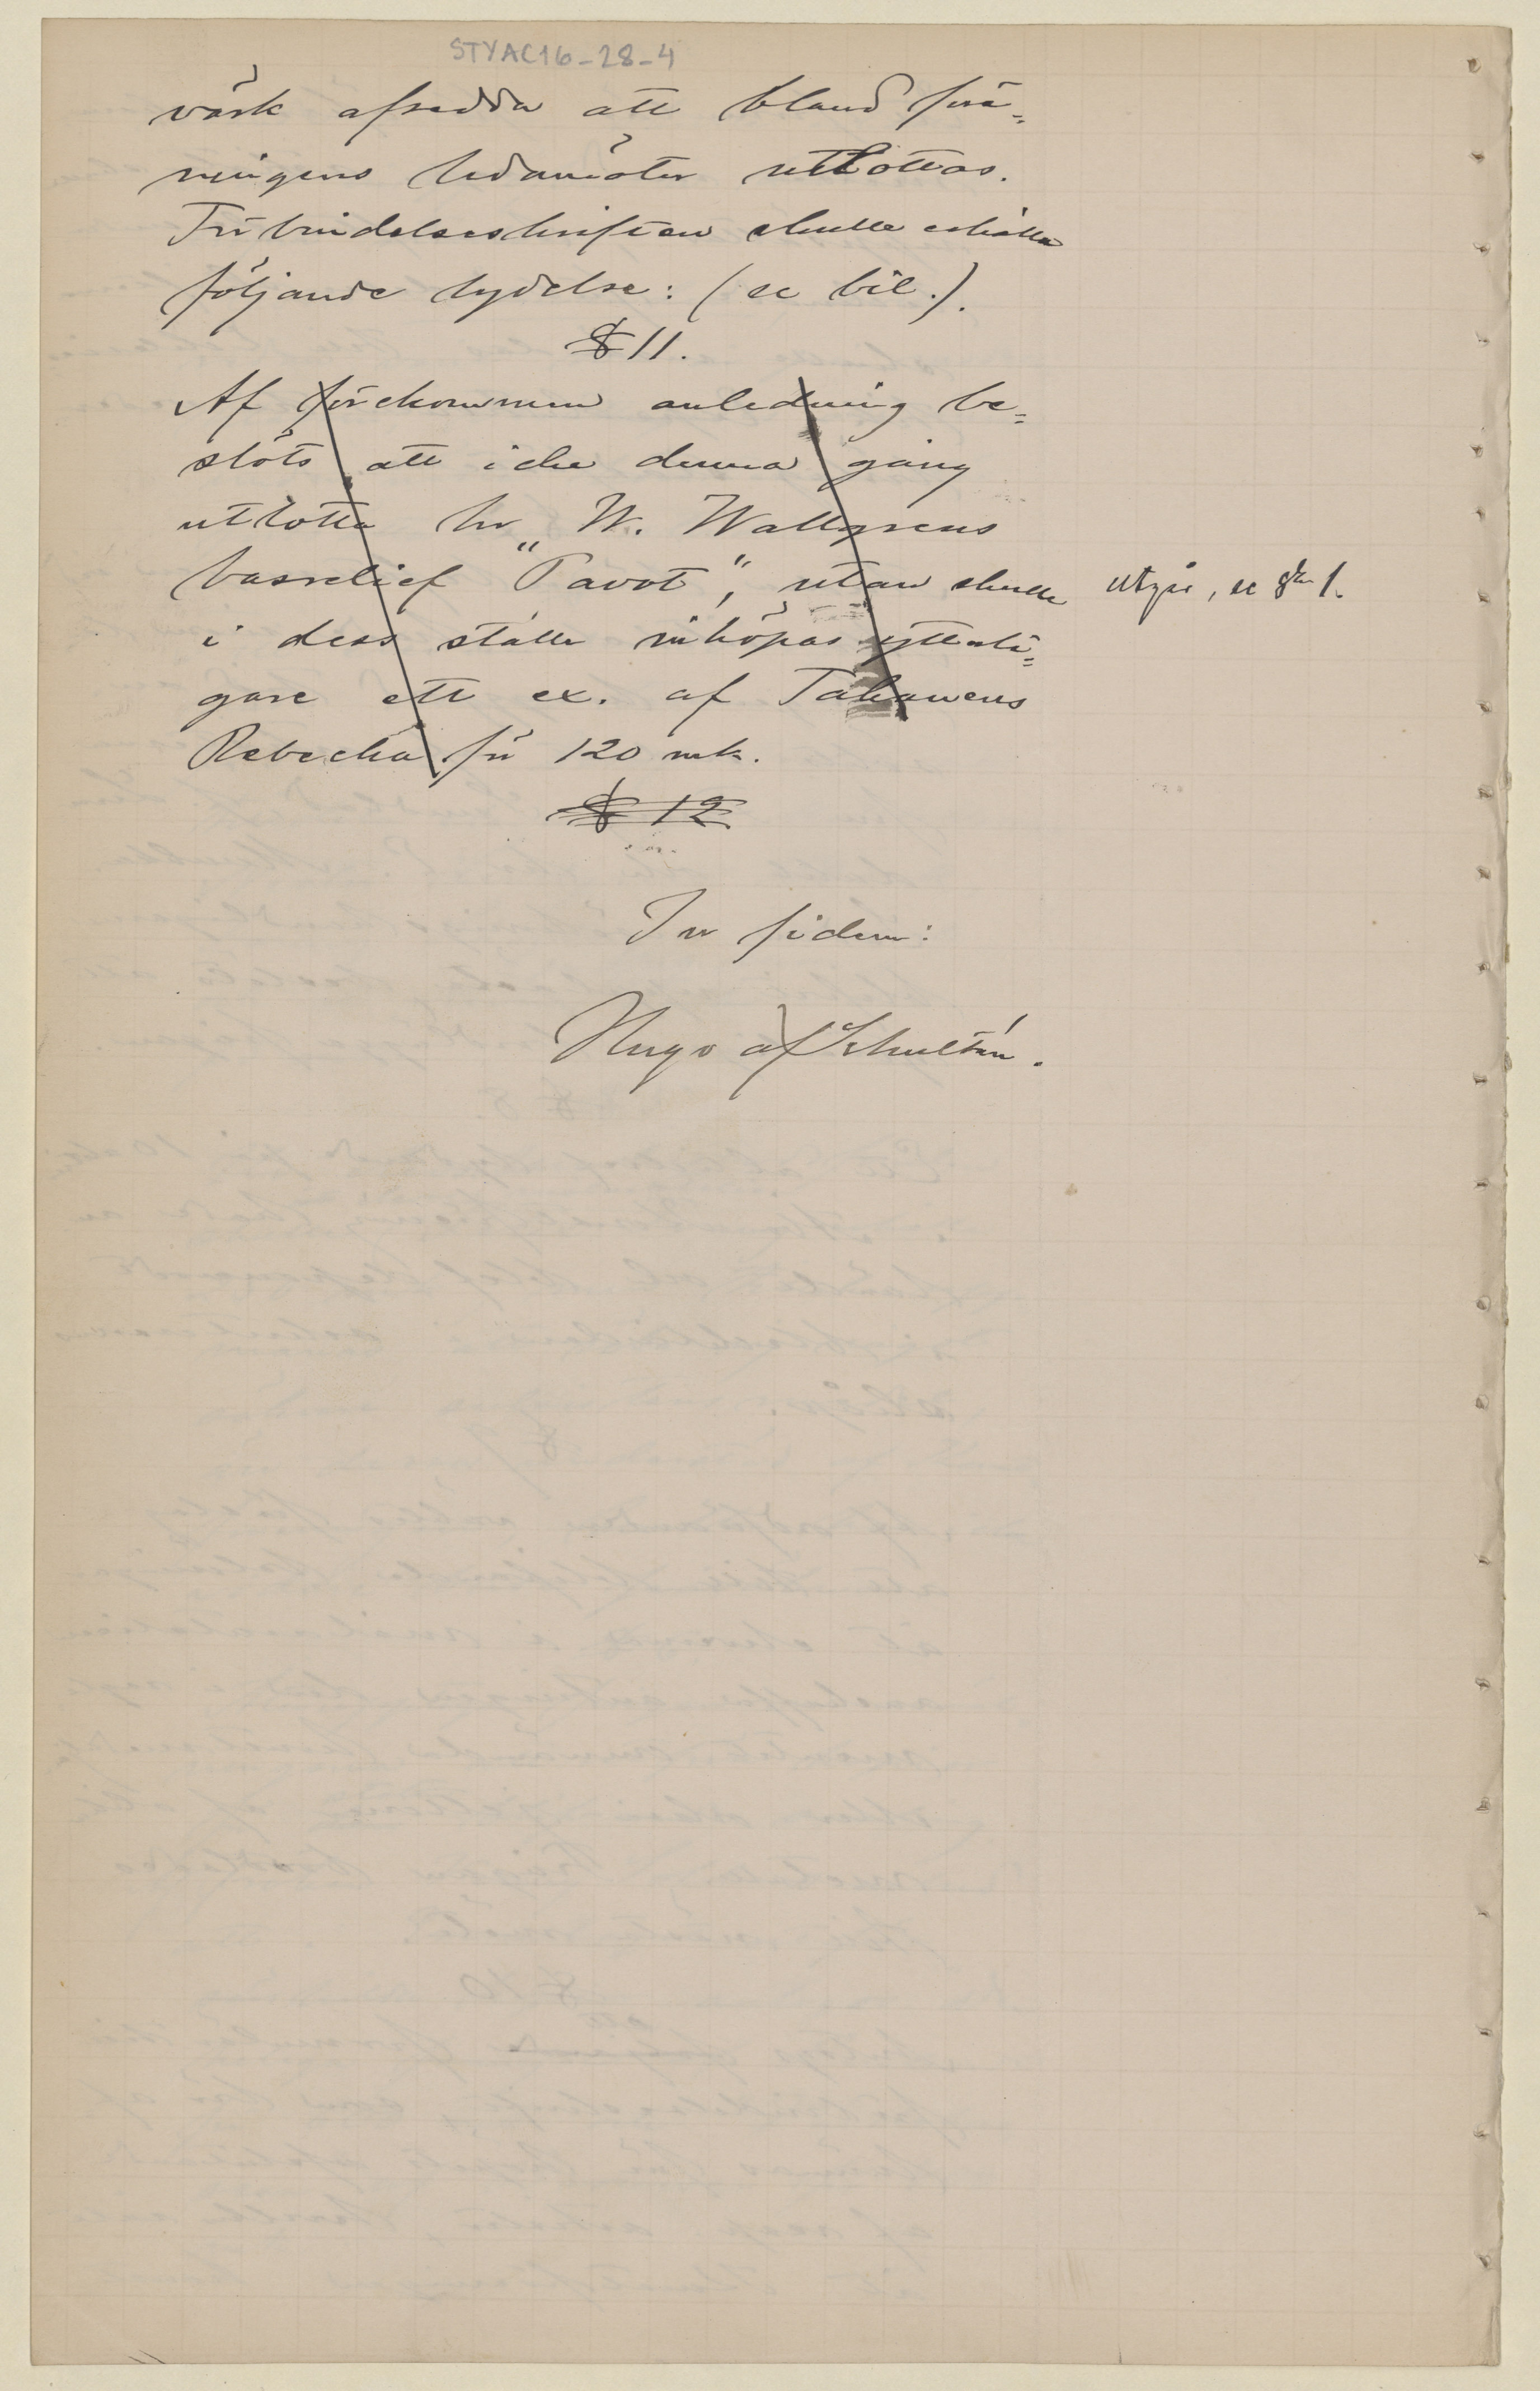 STYAC16-28-4
värk afsedda att bland före=
ningens ledamöter utlottas.
Förbindelseskriften skulle erhålla
följande lydelse: (se bil.).
§ 11.
Af förekommen anledning be=
slöts att icke denna gång
utlotta hr W. Wallgrens
basrelief "Pavot", utan skulle utgår, se § 1.
i dess ställe inköpas ytterli=
gare ett ex. af Takanens
Rebecka för 120 mk.
§ 12
In fidem:
Hugo af Schultén.